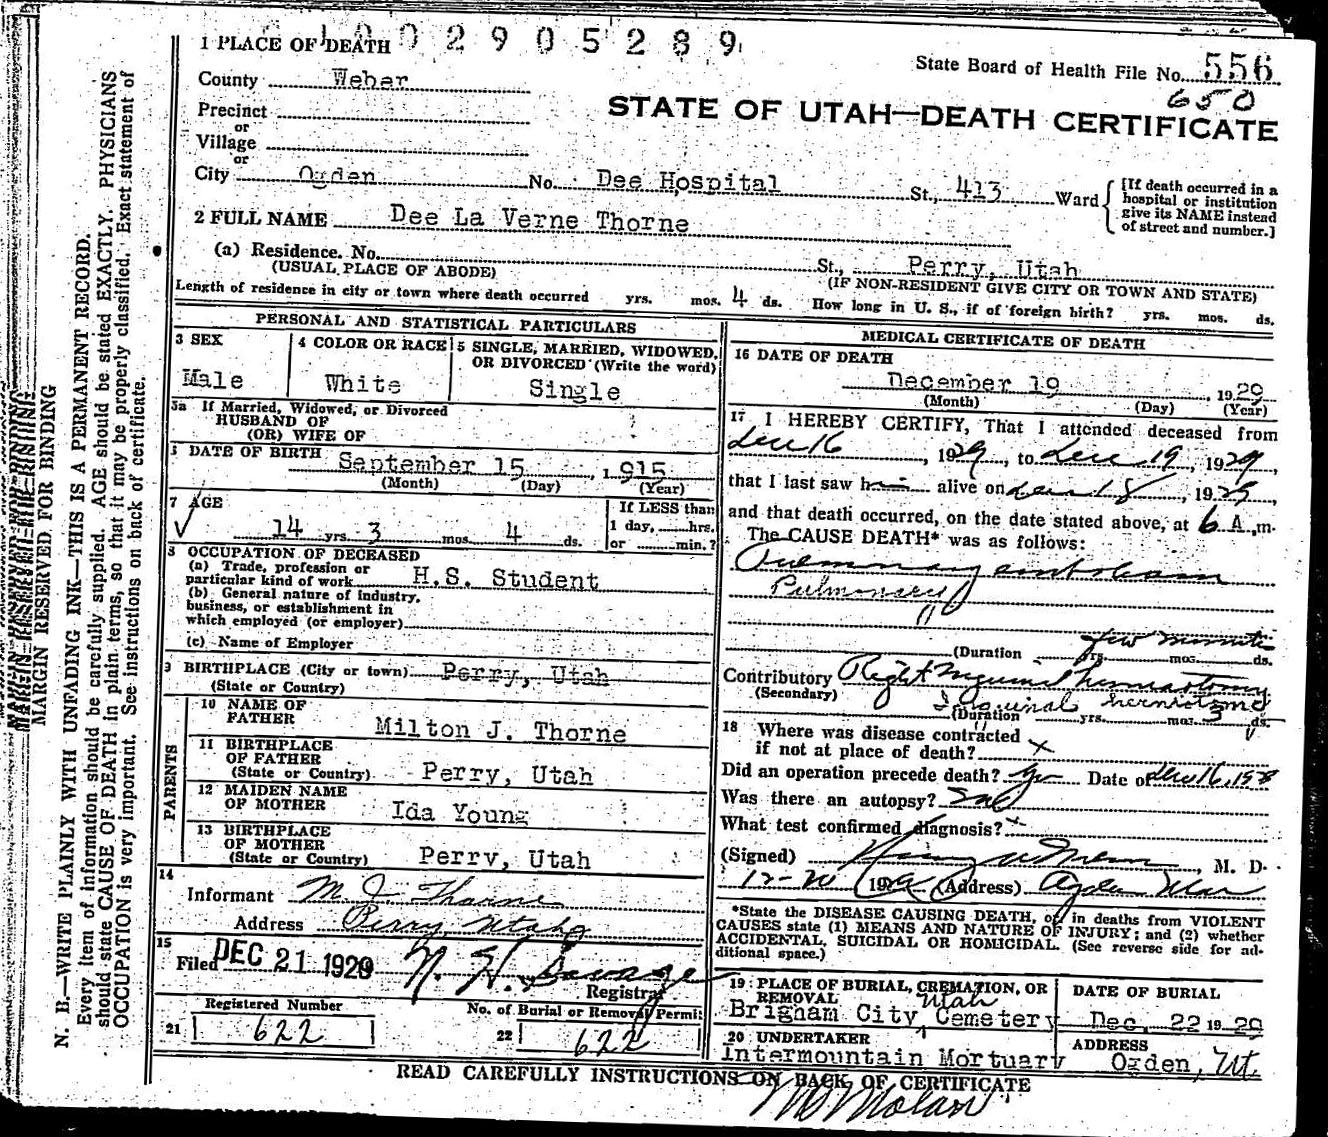 1002905289
1 PLACE OF DEATH
State Board of Health File No. 556
650
County Weber
STATE OF UTAH—DEATH CERTIFICATE
Precinct
or
Village
or
City Ogden No. Dee Hospital St., 413 Ward
[If death occurred in a hospital or institution give its NAME instead of street and number.]
2 FULL NAME Dee La Verne Thorne
(a) Residence. No. St., Perry, Utah
(USUAL PLACE OF ABODE) (IF NON-RESIDENT GIVE CITY OR TOWN AND STATE)
Length of residence in city or town where death occurred yrs. mos. 4 ds. How long in U. S., if of foreign birth? yrs. mos. ds.
PERSONAL AND STATISTICAL PARTICULARS
3 SEX
Male
4 COLOR OR RACE
White
5 SINGLE, MARRIED, WIDOWED,
OR DIVORCED (Write the word)
Single
5a If Married, Widowed, or Divorced
HUSBAND OF
(OR) WIFE OF
DATE OF BIRTH September 15, 1915
(Month) (Day) (Year)
7 AGE
14 yrs. 3 mos. 4 ds.
If LESS than
1 day, hrs.
or min.?
8 OCCUPATION OF DECEASED
(a) Trade, profession or
particular kind of work H.S. Student
(b) General nature of industry,
business, or establishment in
which employed (or employer)
(c) Name of Employer
9 BIRTHPLACE (City or town) Perry, Utah
(State or Country)
PARENTS
10 NAME OF
FATHER Milton J. Thorne
11 BIRTHPLACE
OF FATHER
(State or Country) Perry, Utah
12 MAIDEN NAME
OF MOTHER Ida Young
13 BIRTHPLACE
OF MOTHER
(State or Country) Perry, Utah
14
Informant M. J. Thorne
Address Perry, Utah
15
Filed DEC 21 1929 N. H. Savage
Registrar
Registered Number
21 622
No. of Burial or Removal Permit
22 622
MEDICAL CERTIFICATE OF DEATH
16 DATE OF DEATH
December 19, 1929
(Month) (Day) (Year)
17 I HEREBY CERTIFY, That I attended deceased from
Dec 16, 1929, to Dec 19, 1929,
that I last saw him alive on Dec 18, 1929,
and that death occurred, on the date stated above, at 6 A.m.
The CAUSE DEATH* was as follows:
Pulmonary embolism
Pulmonary
few minutes
(Duration yrs. mos. ds.
Contributory Right Inguinal herniotomy
(Secondary) Inguinal herniotomy
(Duration yrs. mos. 3 ds.
18 Where was disease contracted
if not at place of death? x
Did an operation precede death? yes Date of Dec 16, 1928
Was there an autopsy?
What test confirmed diagnosis? x
(Signed) , M. D.
12-20 1929 (Address) Ogden Utah
*State the DISEASE CAUSING DEATH, or in deaths from VIOLENT
CAUSES state (1) MEANS AND NATURE OF INJURY; and (2) whether
ACCIDENTAL, SUICIDAL OR HOMICIDAL. (See reverse side for ad-
ditional space.)
19 PLACE OF BURIAL, CREMATION, OR
REMOVAL Utah
Brigham City Cemetery
DATE OF BURIAL
Dec. 22 1929
20 UNDERTAKER
Intermountain Mortuary
ADDRESS
Ogden, Ut.
READ CAREFULLY INSTRUCTIONS ON BACK OF CERTIFICATE
MARGIN RESERVED FOR BINDING
N. B.—WRITE PLAINLY WITH UNFADING INK—THIS IS A PERMANENT RECORD.
Every item of information should be carefully supplied. AGE should be stated EXACTLY. PHYSICIANS
should state CAUSE OF DEATH in plain terms, so that it may be properly classified. Exact statement of
OCCUPATION is very important. See instructions on back of certificate.